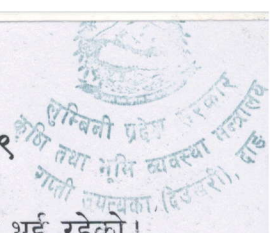 लुम्बिनी प्रदेश सरकार
कृषि तथा भूमि व्यवस्था मन्त्रालय
राप्ती उपत्यका (देउखुरी), दाङ
९
भई रहेको।